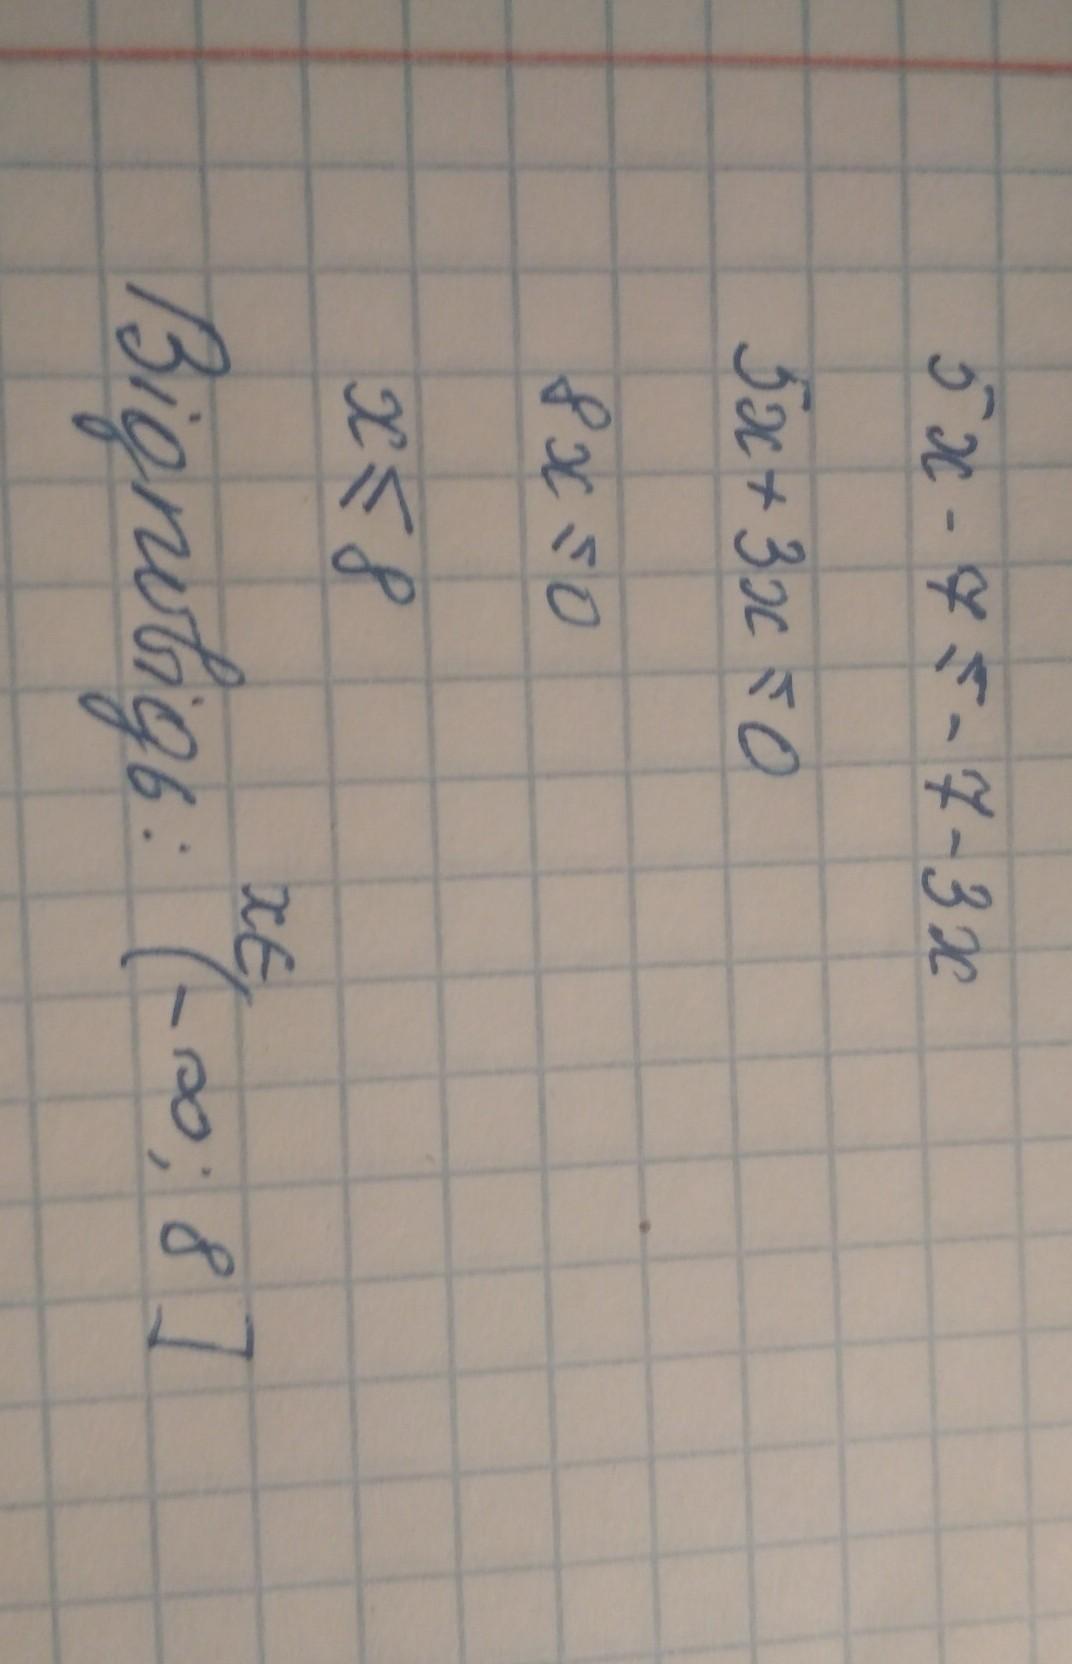 5x - 7 ≤ - 7 - 3x
5x + 3x ≤ 0
8x ≤ 0
x ≤ 8
Відповідь: x∈ (-∞; 8]